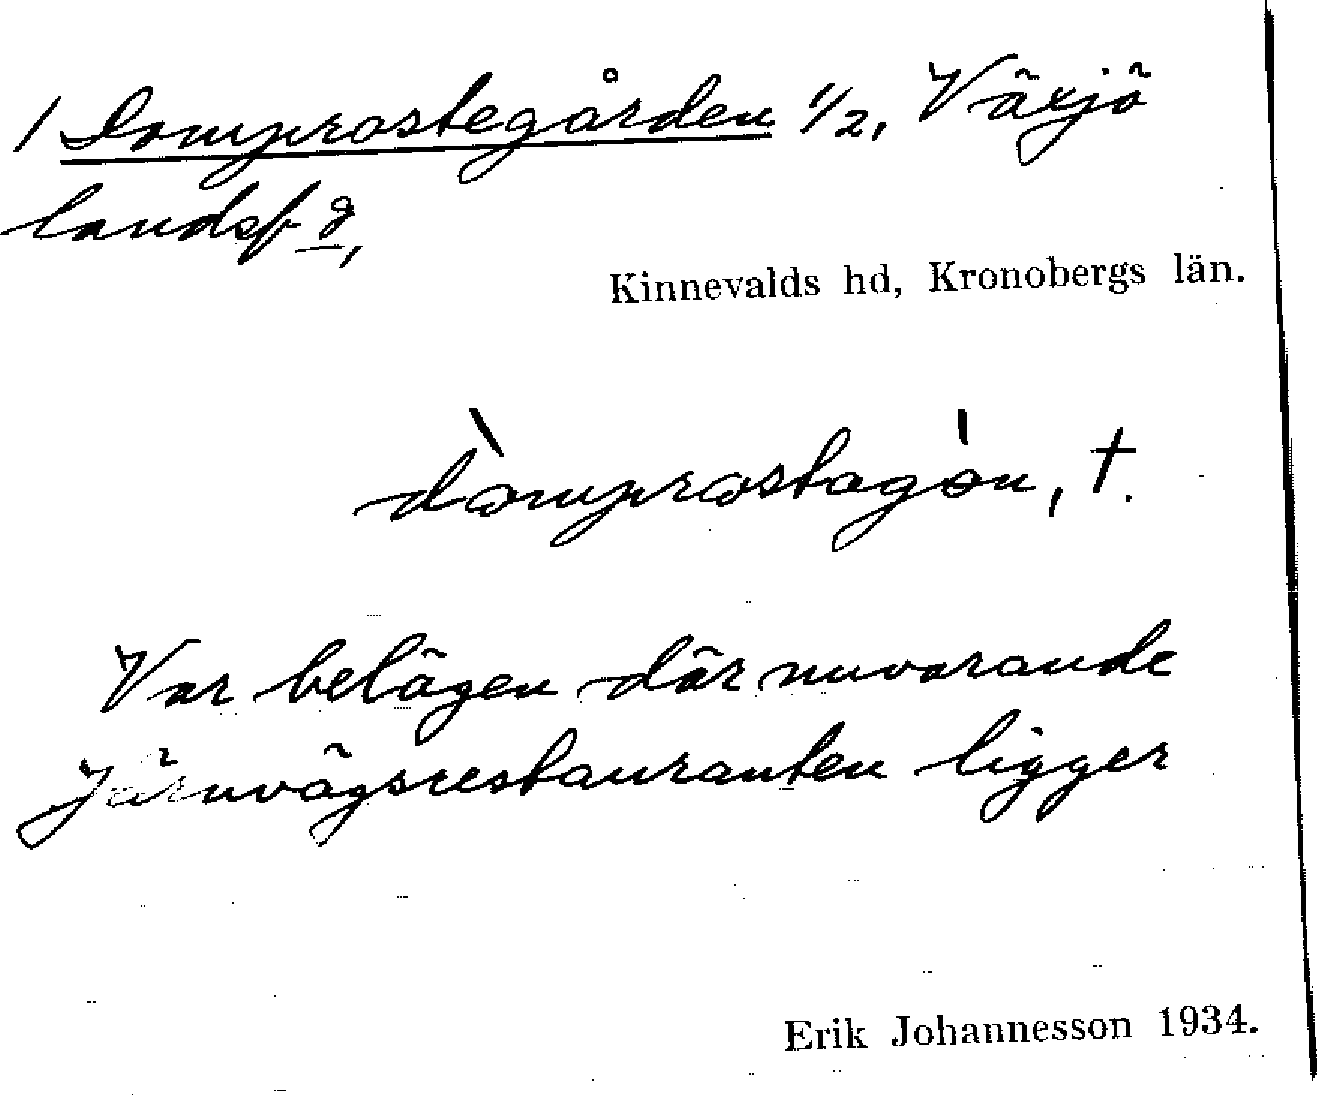 / Domprostegården 1/2, Växjö
landsf d,
Kinnevalds hd, Kronobergs län.
dòmprostagón, †.
Var belägen där nuvarande
Järnvägsrestauranten ligger
Erik Johannesson 1934.